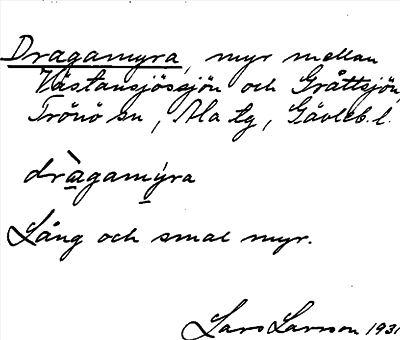 Dragamyra, myr mellan
Västansjössjön och Gråttsjön,
Trönö sn, Ala tg, Gävleb. l.
dràgamýra
Lång och smal myr.
Lars Larsson 1931